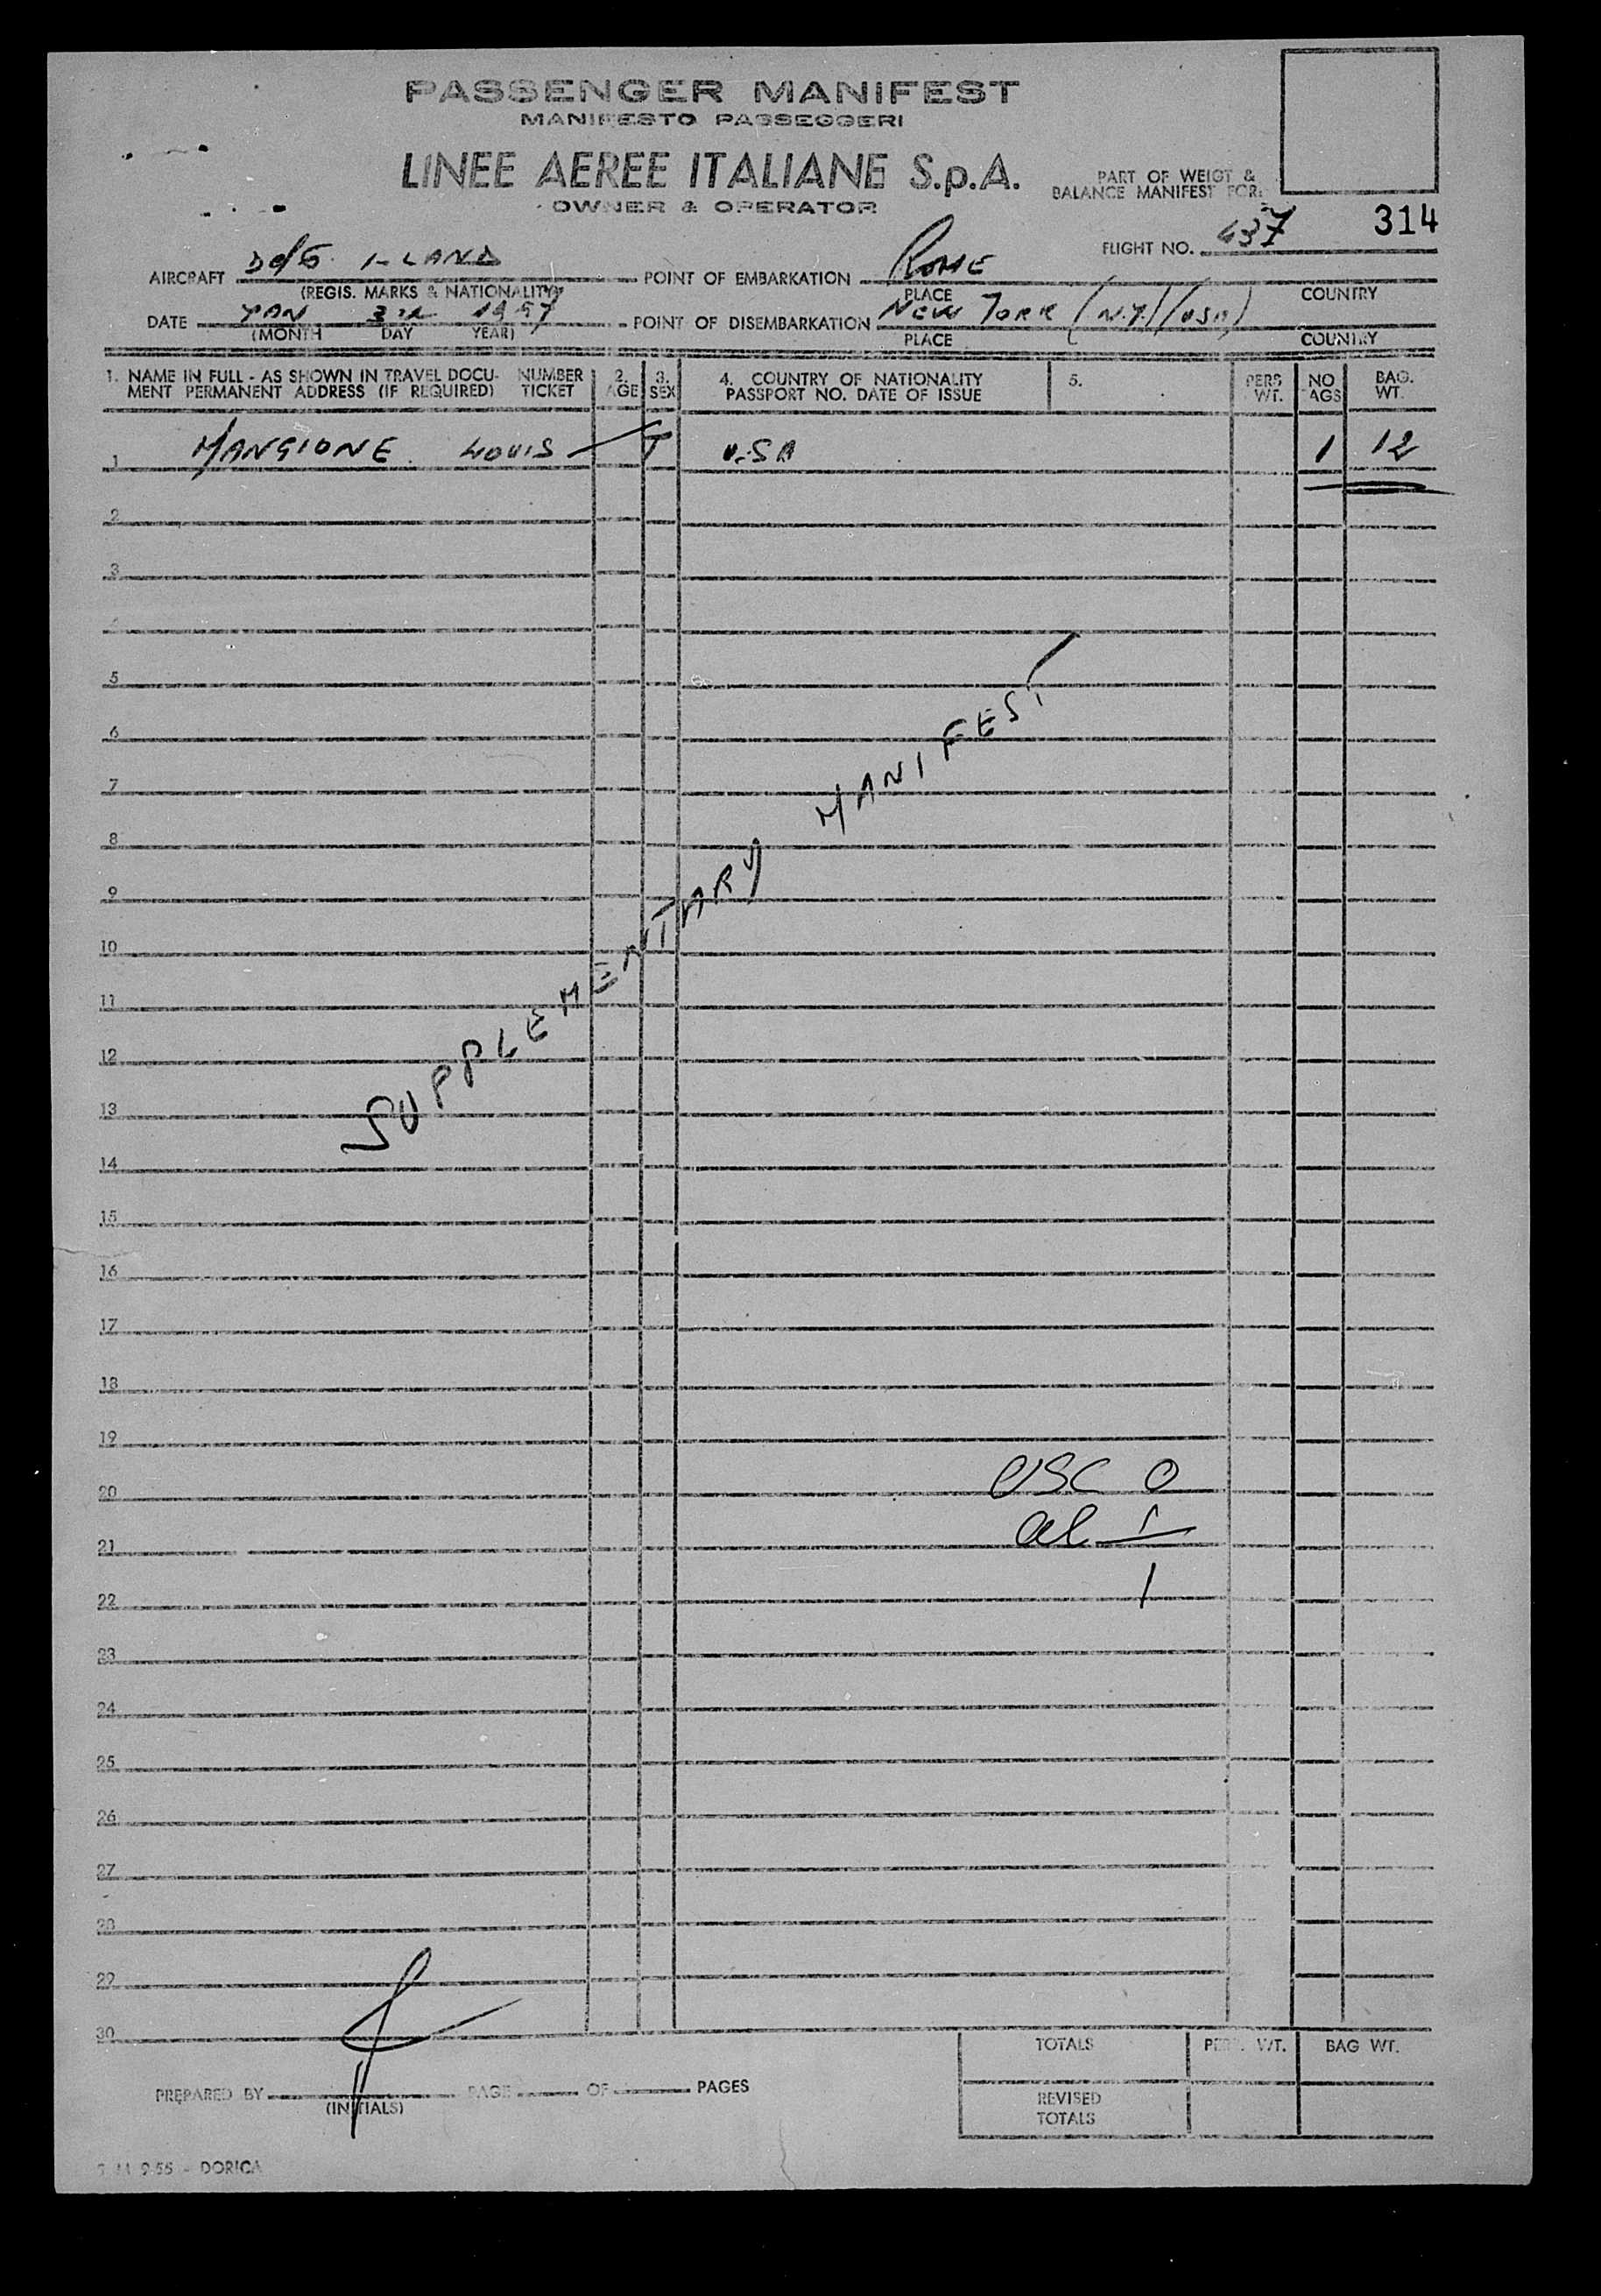 PASSENGER MANIFEST
MANIFESTO PASSEGGERI
LINEE AEREE ITALIANE S.p.A.
OWNER & OPERATOR
PART OF WEIGT &
BALANCE MANIFEST FOR:
314
FLIGHT NO. 437
AIRCRAFT DC/6 I-LAND POINT OF EMBARKATION ROME
(REGIS. MARKS & NATIONALITY) PLACE COUNTRY
DATE JAN 1957 POINT OF DISEMBARKATION NEW YORK (N.Y.)(USA)
(MONTH DAY YEAR) PLACE COUNTRY
1. NAME IN FULL - AS SHOWN IN TRAVEL DOCU- NUMBER 2. 3. 4. COUNTRY OF NATIONALITY 5. PERS NO BAG.
MENT PERMANENT ADDRESS (IF REQUIRED) TICKET AGE SEX PASSPORT NO. DATE OF ISSUE WT. AGS WT.
1 MANGIONE LOUIS USA 1 12
2
3
4
5
6
7
8
9
10
11
12
13
14
15
16
17
18
19
20
21
22
23
24
25
26
27
28
29
30
SUPPLEMENTARY MANIFEST
USC 0
al 1
1
TOTALS PERS. WT. BAG WT.
PREPARED BY PAGE OF PAGES
(INITIALS)
REVISED
TOTALS
9-55 - DORICA